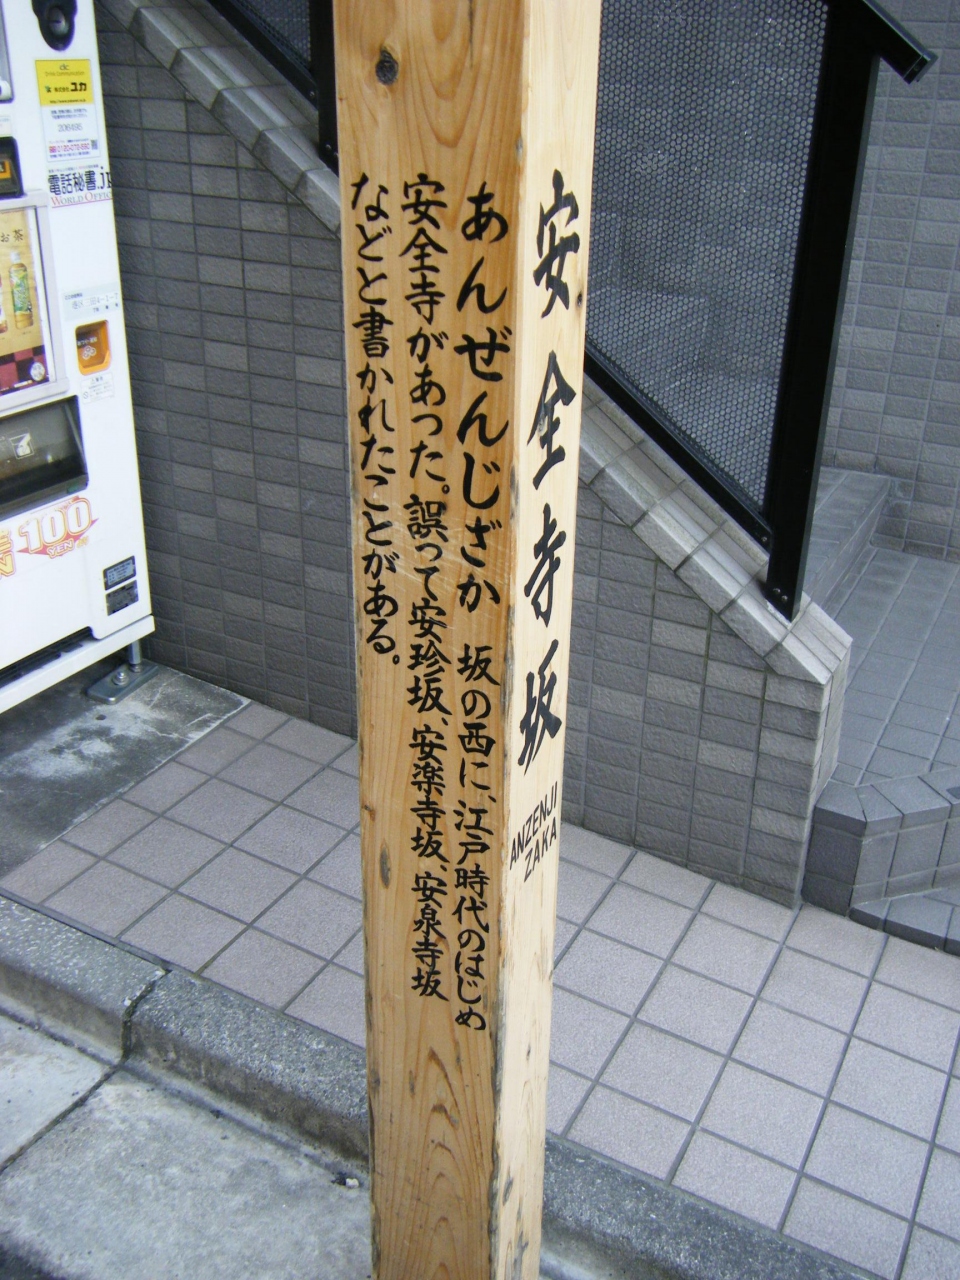 安全寺坂
ANZENJI
ZAKA
あんぜんじざか 坂の西に、江戸時代のはじめ
安全寺があった。誤って安珍坂、安楽寺坂、安泉寺坂
などと書かれたことがある。
株式会社 ユカ
206495
電話秘書.jp
WORLD OFFICE
お茶
100
YEN